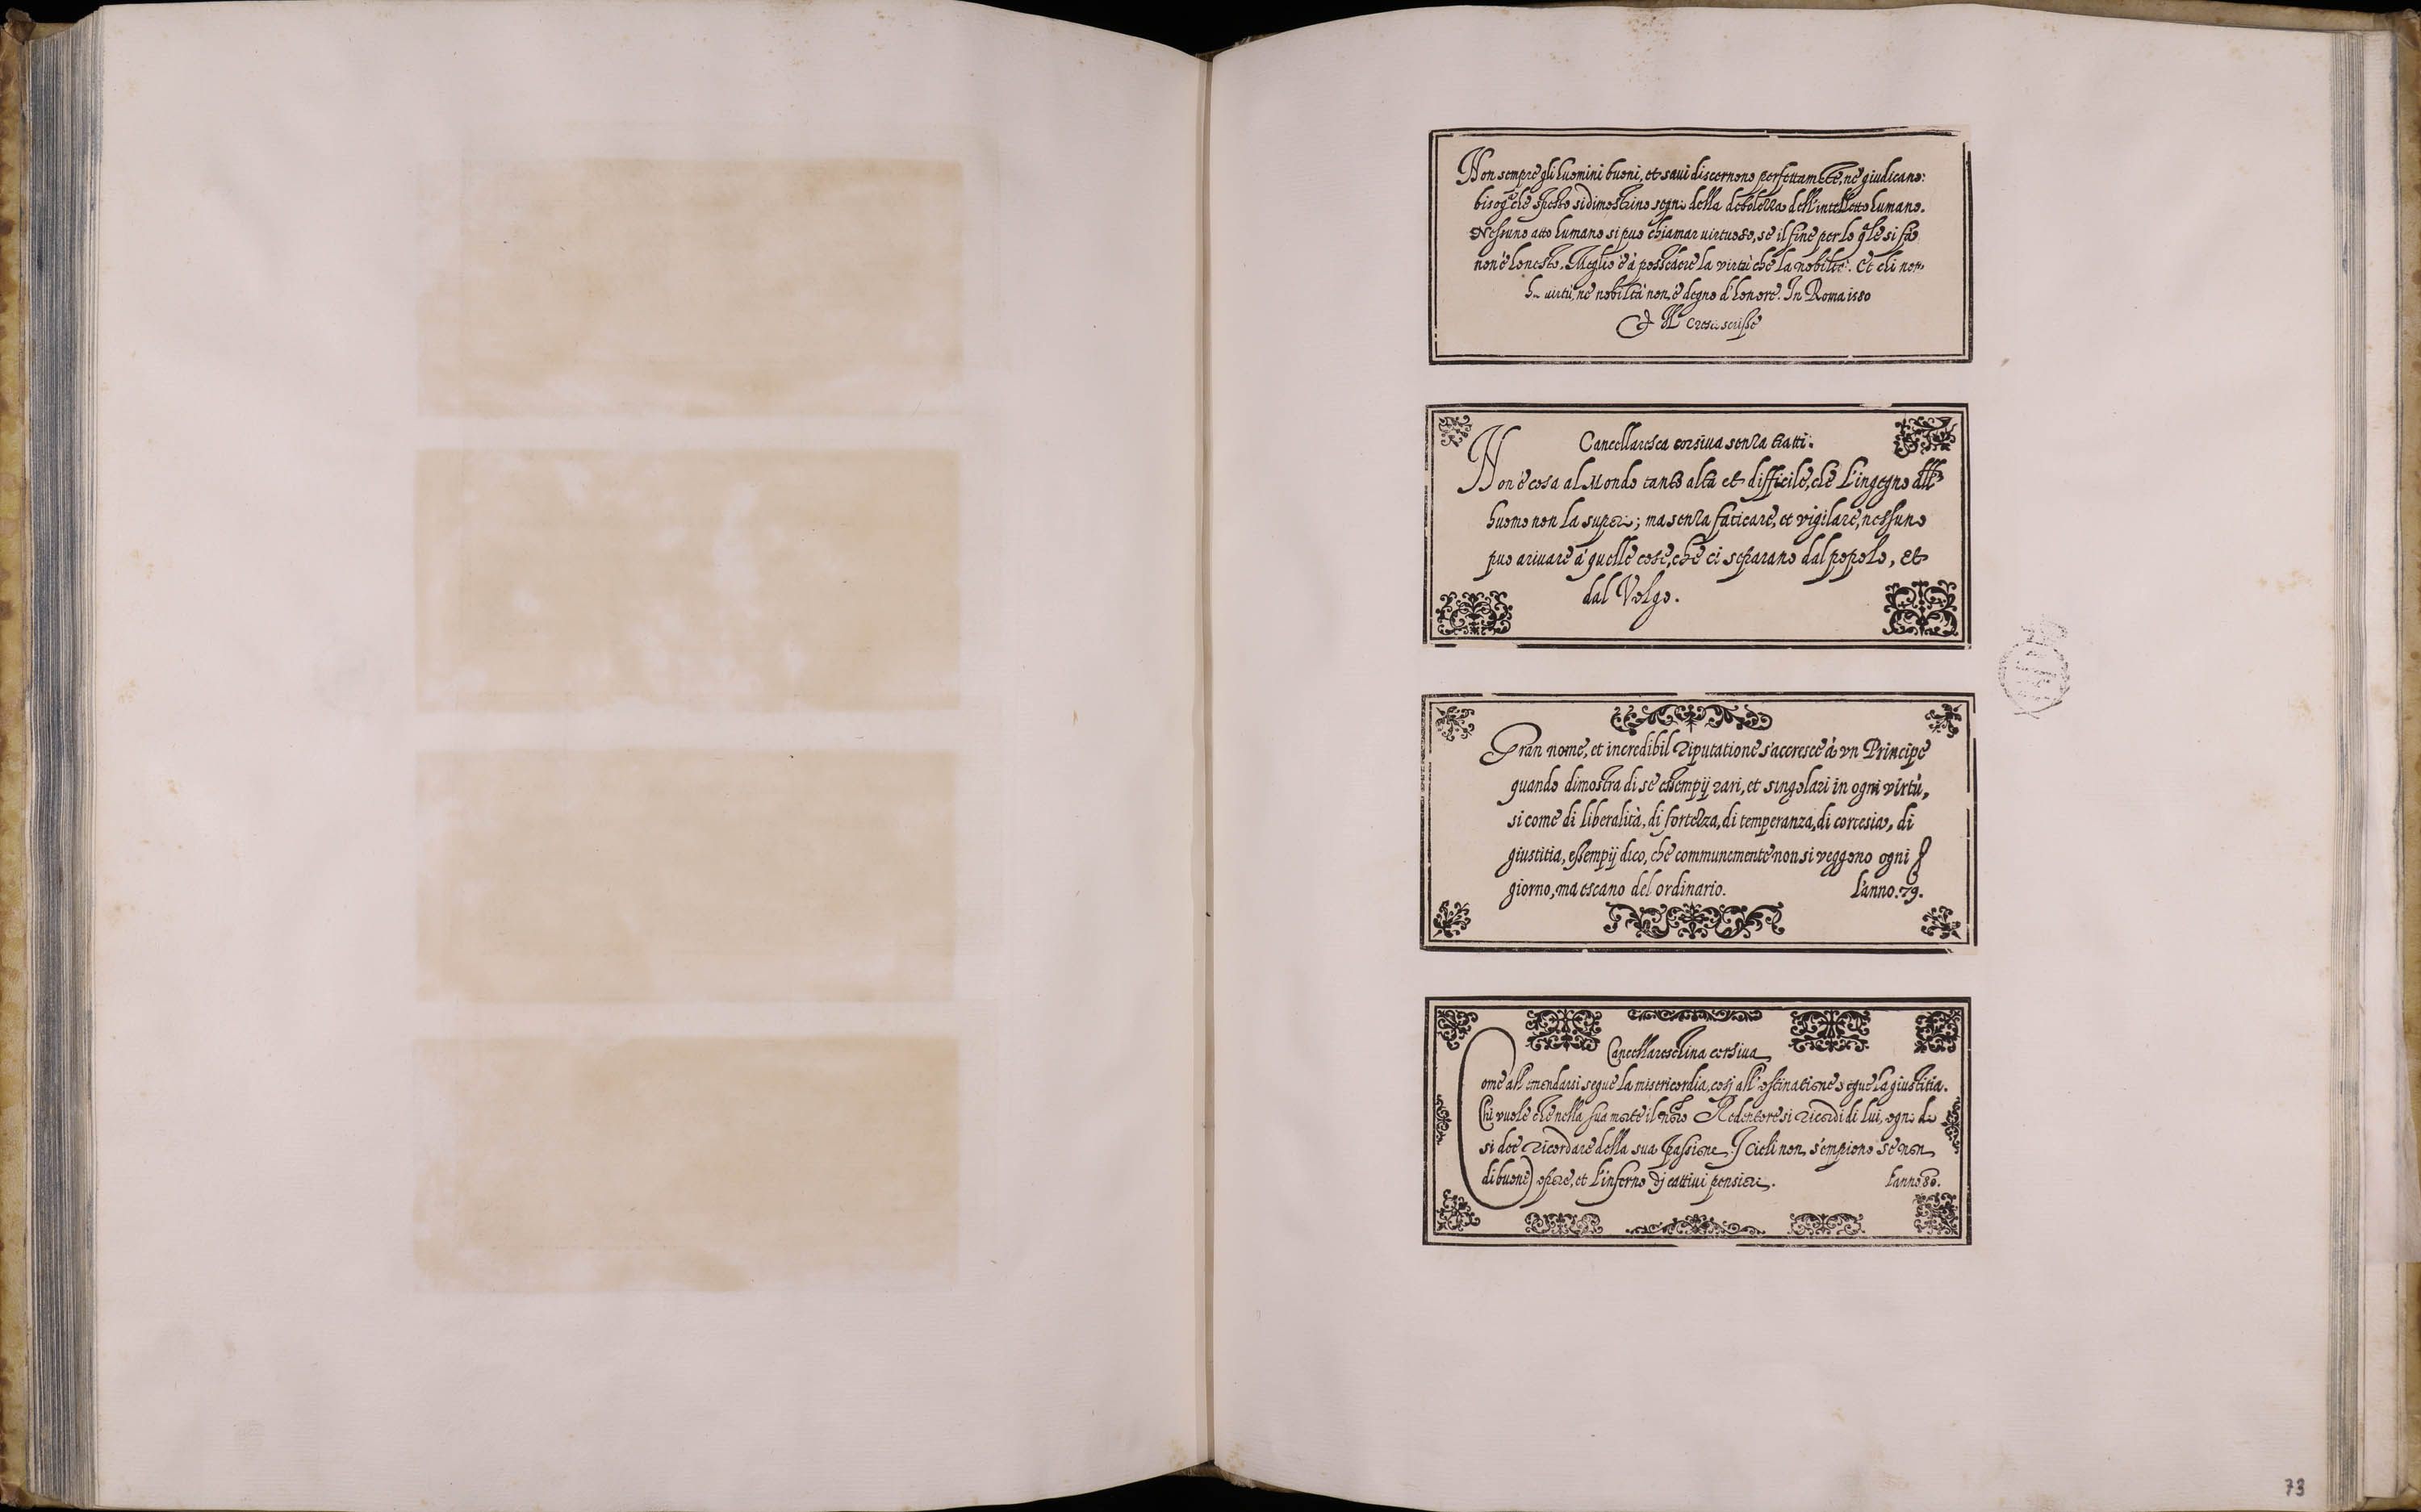 Non sempre gli huomini buoni, et savi discernono perfettamẽte, nè giudicano:
bisog.ª che spesso si dimostrino segni della debolezza dell'intelletto humano.
Nessuno atto humano si puo chiamar virtuoso, se il fine per lo q̃le si fa
non è honesto. Meglio è à possedere la virtù che la nobiltà. Et chi non
ha virtù, nè nobiltà non è degno d'honore. In Roma 1580
Cresci scrisse
Cancellaresca corsiua senza tratti.
Non è cosa al Mondo tanto alta et difficile, che l'ingegno dell'
huomo non la superi; ma senza faticare, et vigilare, nessuno
puo arivare à quelle cose, che ci separano dal popolo, et
dal Volgo.
Gran nome, et incredibil riputatione s'accresce à vn Principe
quando dimostra di se essempij rari, et singolari in ogni virtù,
si come di liberalità, di fortezza, di temperanza, di cortesia, di
giustitia, essempij dico, che communemente non si veggono ogni
giorno, ma escano del ordinario. L'anno. 79.
Cancellareschina corsiua
Come all'emendarsi segue la misericordia, cosj all'ostinatione segue la giustitia.
Chi vuole che nella sua morte il nr̃o Redentore si ricordi di lui, ogni dì
si dee ricordare della sua Passione. J cieli non s'empiono se non
di buone opere, et l'inferno dj cattiui pensieri. L'anno 80.
73